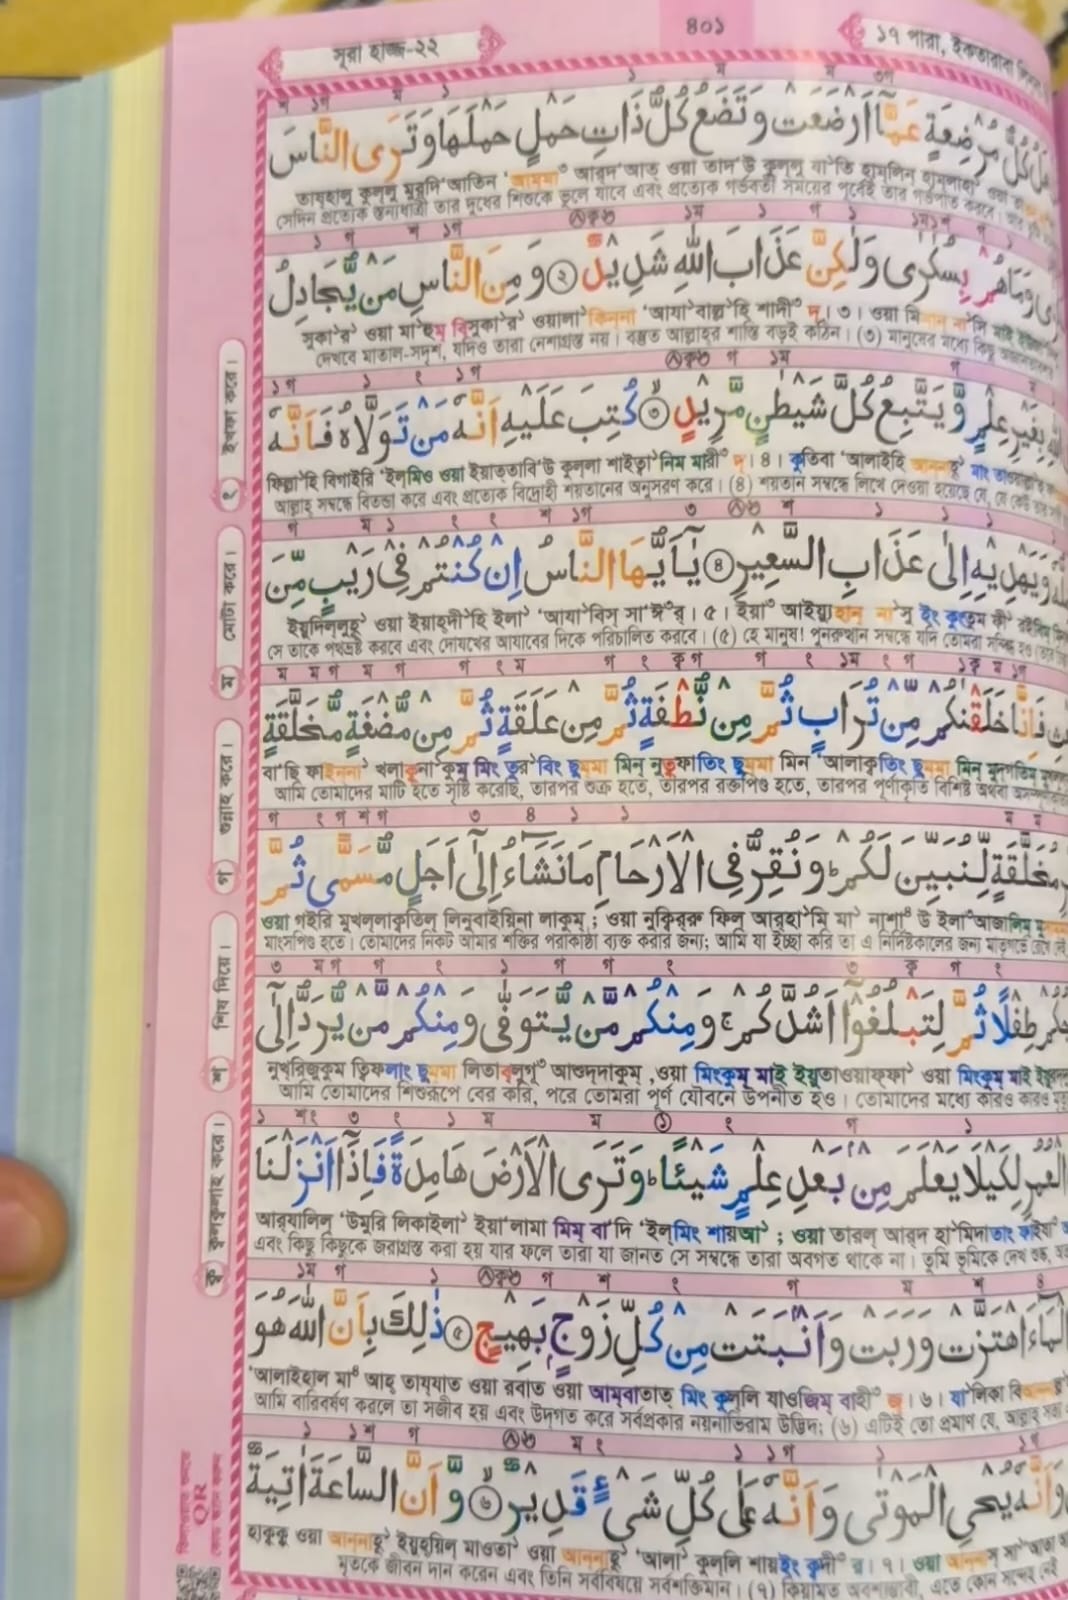 সূরা হাজ্জ-২২
৪০১
১৭ পারা, ইকতারাবা
كُلُّ مُرْضِعَةٍ عَمَّآ اَرْضَعَتْ وَتَضَعُ كُلُّ ذَاتِ حَمْلٍ حَمْلَهَا وَتَرَى النَّاسَ
তায্হালু কুল্লু মুরদি‘আতিন ‘আম্মা আরদ‘আত্ ওয়া তাদ‘উ কুল্লু যা’তি হাম্লিন্ হাম্লাহা’ ওয়া
সেদিন প্রত্যেক স্তন্যধাত্রী তার দুধের শিশুকে ভুলে যাবে এবং প্রত্যেক গর্ভবতী সময়ের পূর্বেই তার গর্ভপাত করবে।
وَمَا هُمْ بِسُكٰرٰى وَلٰكِنَّ عَذَابَ اللّٰهِ شَدِيْدٌ ۝٢ وَمِنَ النَّاسِ مَنْ يُّجَادِلُ
সুকা’র’ ওয়া মা’হুম্ বিসুকা’র’ ওয়ালা’কিন্না ‘আযা’বাল্লা’হি শাদী দ্। ৩। ওয়া মিনান্ না’সি মাই
দেখবে মাতাল-সদৃশ, যদিও তারা নেশাগ্রস্ত নয়। বস্তুত আল্লাহর শাস্তি বড়ই কঠিন। (৩) মানুষের মধ্যে কিছু
بِغَيْرِ عِلْمٍ وَّيَتَّبِعُ كُلَّ شَيْطٰنٍ مَّرِيْدٍ ۝٣ كُتِبَ عَلَيْهِ اَنَّهٗ مَنْ تَوَلَّاهُ فَاَنَّهٗ
ফিল্লা’হি বিগাইরি ‘ইল্মিও ওয়া ইয়াত্তাবি‘উ কুল্লা শাইত্বা’নিম মারী দ্। ৪। কুতিবা ‘আলাইহি আন্নাহূ’ মাং
আল্লাহ সম্বন্ধে বিতন্ডা করে এবং প্রত্যেক বিদ্রোহী শয়তানের অনুসরণ করে। (৪) শয়তান সম্বন্ধে লিখে দেওয়া হয়েছে যে, যে কেউ তার
وَيَهْدِيْهِ اِلٰى عَذَابِ السَّعِيْرِ ۝٤ يٰٓاَيُّهَا النَّاسُ اِنْ كُنْتُمْ فِيْ رَيْبٍ مِّنَ
ইয়ুদিল্লুহূ’ ওয়া ইয়াহ্দী’হি ইলা’ ‘আযা’বিস্ সা‘ঈ র্। ৫। ইয়া আইয়্যুহান্ না’সু ইং কুংতুম ফী’
সে তাকে পথভ্রষ্ট করবে এবং দোযখের আযাবের দিকে পরিচালিত করবে। (৫) হে মানুষ! পুনরুত্থান সম্বন্ধে যদি তোমরা
فَاِنَّا خَلَقْنٰكُمْ مِّنْ تُرَابٍ ثُمَّ مِنْ نُّطْفَةٍ ثُمَّ مِنْ عَلَقَةٍ ثُمَّ مِنْ مُّضْغَةٍ مُّخَلَّقَةٍ
বা’ছি ফাইন্না’ খলাক্বনা’কুম্ মিং তুর’বিং ছুম্মা মিন্ নুত্বফাতিং ছুম্মা মিন ‘আলাক্বতিং ছুম্মা মিন্
আমি তোমাদের মাটি হতে সৃষ্টি করেছি, তারপর শুক্র হতে, তারপর রক্তপিণ্ড হতে, তারপর পূর্ণাকৃতি বিশিষ্ট অথবা
مُخَلَّقَةٍ لِّنُبَيِّنَ لَكُمْ ؕ وَنُقِرُّ فِى الْاَرْحَامِ مَا نَشَآءُ اِلٰٓى اَجَلٍ مُّسَمًّى ثُمَّ
ওয়া গইরি মুখল্লাক্বতিল্ লিনুবাইয়িনা লাকুম্ ; ওয়া নুক্বির্রু ফিল্ আরহা’মি মা’ নাশা উ ইলা আজালিম্
মাংসপিণ্ড হতে। তোমাদের নিকট আমার শক্তির পরাকাষ্ঠা ব্যক্ত করার জন্য; আমি যা ইচ্ছা করি তা এ নির্দিষ্টকালের জন্য মাতৃগর্ভে
طِفْلًا ثُمَّ لِتَبْلُغُوْٓا اَشُدَّكُمْ ۚ وَمِنْكُمْ مَّنْ يُّتَوَفّٰى وَمِنْكُمْ مَّنْ يُّرَدُّ اِلٰٓى
নুখরিজুকুম ত্বিফলাং ছুম্মা লিতাবলুগূ আশুদ্দাকুম্ ,ওয়া মিংকুম্ মাই ইয়ুতাওয়াফ্ফা’ ওয়া মিংকুম্ মাই
আমি তোমাদের শিশুরূপে বের করি, পরে তোমরা পূর্ণ যৌবনে উপনীত হও। তোমাদের মধ্যে কারও কারও
الْعُمُرِ لِكَيْلَا يَعْلَمَ مِنْۢ بَعْدِ عِلْمٍ شَيْـًٔا ؕ وَتَرَى الْاَرْضَ هَامِدَةً فَاِذَآ اَنْزَلْنَا
আরযালিল্ ‘উমুরি লিকাইলা’ ইয়া‘লামা মিম্ বা‘দি ‘ইল্মিং শায়আ’ ; ওয়া তারল্ আরদ হা’মিদাতাং
এবং কিছু কিছুকে জরাগ্রস্ত করা হয় যার ফলে তারা যা জানত সে সম্বন্ধে তারা অবগত থাকে না। তুমি ভূমিকে দেখ শুষ্ক,
الْمَآءَ اهْتَزَّتْ وَرَبَتْ وَاَنْۢبَتَتْ مِنْ كُلِّ زَوْجٍۢ بَهِيْجٍ ۝٥ ذٰلِكَ بِاَنَّ اللّٰهَ هُوَ
‘আলাইহাল মা আহ্ তায্যাত ওয়া রবাত ওয়া আম্বাতাত্ মিং কুল্লি যাওজিম্ বাহী জ্। ৬। যা’লিকা
আমি বারিবর্ষণ করলে তা সজীব হয় এবং উদ্গত করে সর্বপ্রকার নয়নাভিরাম উদ্ভিদ; (৬) এটিই তো প্রমাণ যে, আল্লাহ সত্য
وَاَنَّهٗ يُحْيِ الْمَوْتٰى وَاَنَّهٗ عَلٰى كُلِّ شَىْءٍ قَدِيْرٌ ۝٦ وَّاَنَّ السَّاعَةَ اٰتِيَةٌ
হাক্বক্বু ওয়া আন্নাহূ’ ইয়ুহ্য়িল্ মাওতা’ ওয়া আন্নাহূ’ ‘আলা’ কুল্লি শায়ইং ক্বদী র। ৭। ওয়া
মৃতকে জীবন দান করেন এবং তিনি সর্ববিষয়ে সর্বশক্তিমান। (৭) কিয়ামত অবশ্যম্ভাবী, এতে কোন সন্দেহ নেই
১ ইখফা করে।
ম মোটা করে।
গ গুন্নাহ করে।
শ শিষ দিয়ে।
কৃ ক্বলক্বলাহ করে।
QR